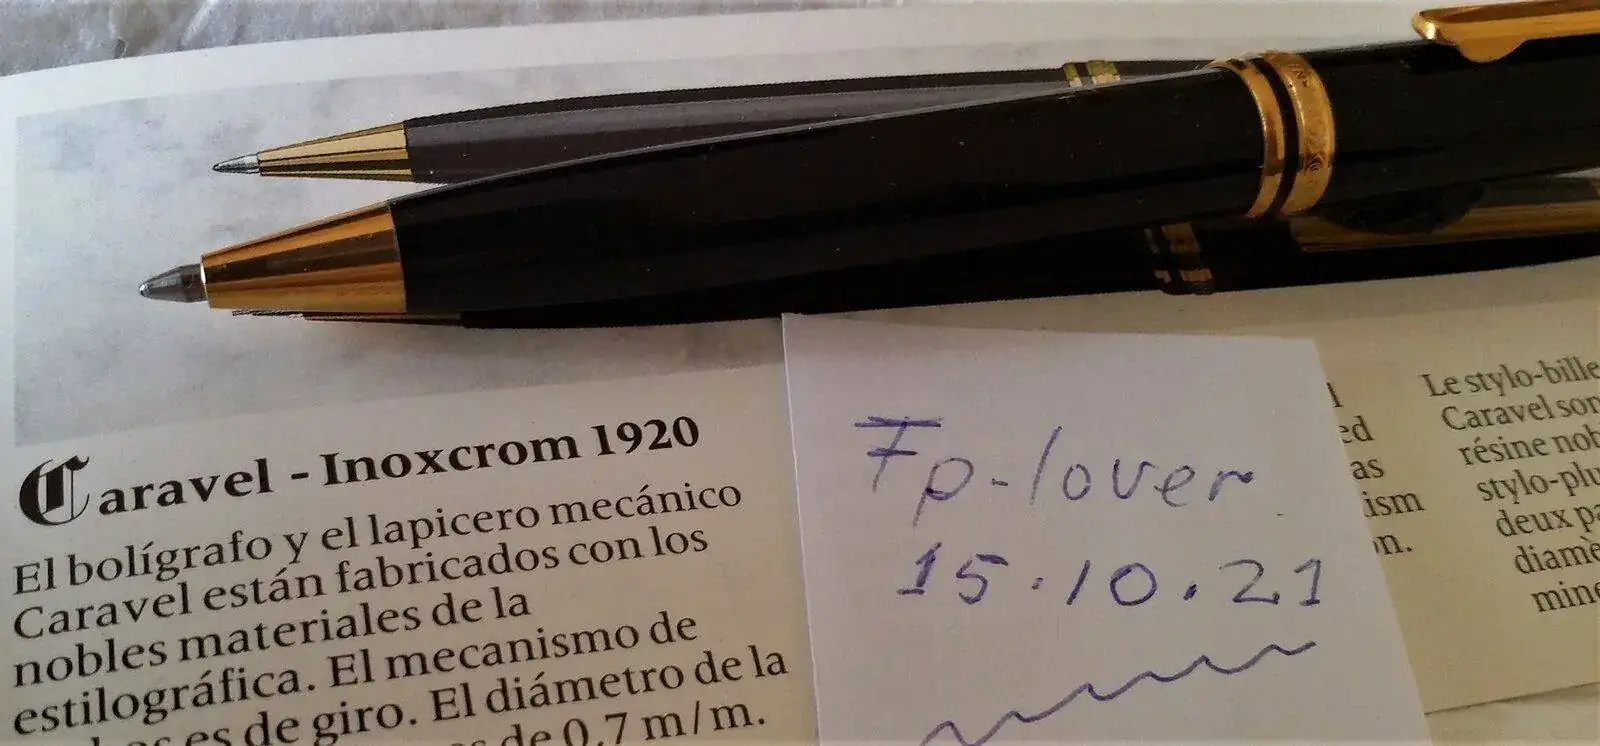 Caravel - Inoxcrom 1920
El bolígrafo y el lapicero mecánico
Caravel están fabricados con los
nobles materiales de la
estilográfica. El mecanismo de
es de giro. El diámetro de la
de 0,7 m/m.
Fp-lover
15.10.21
ed
as
ism
n.
Le stylo-bille
Caravel son
résine nob
stylo-plu
deux pa
diamè
mine